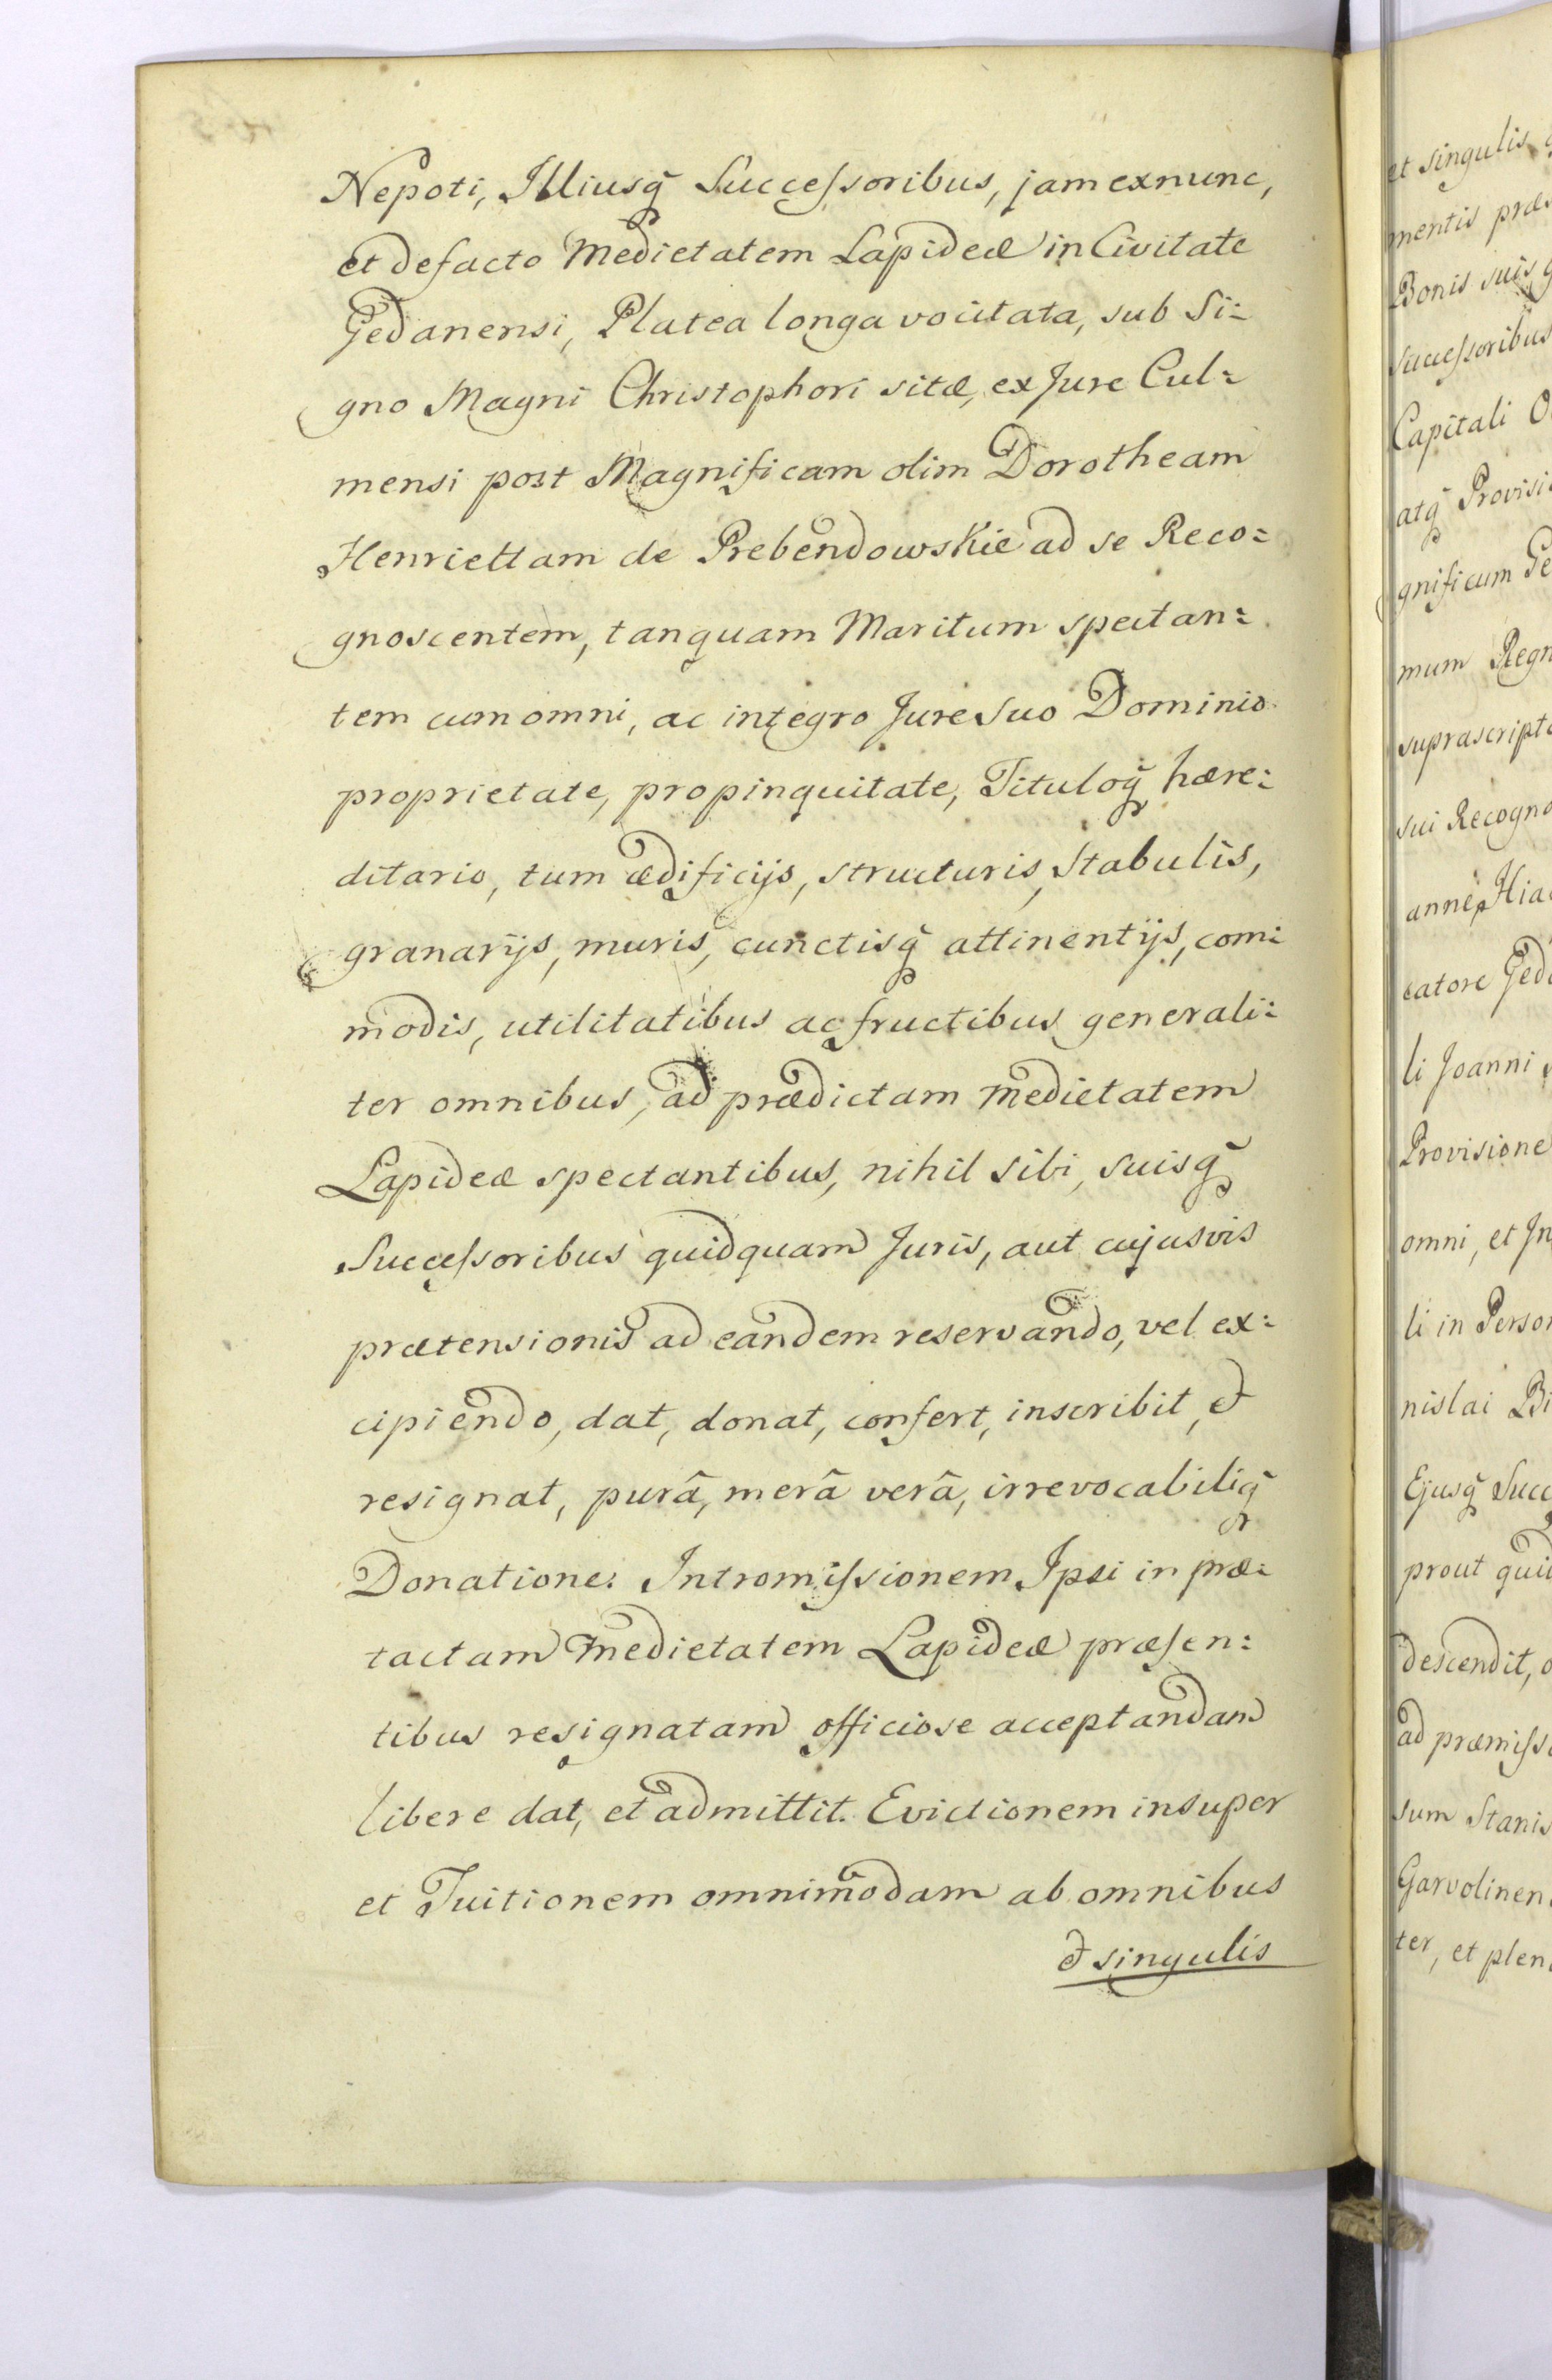 Nepoti, Illiusq̃ Succeſsoribus, jam exnunc,
et defacto Medietatem Lapideæ in Civitate
Gedanensi, Platea longa vocitata, sub Si=
gno Magni Christophori sitæ, ex Jure Cul=
mensi post Magnificam olim Dorotheam
Henriettam de Prebendowskie ad se Reco=
gnoscentem, tanquam Maritum spectan=
tem cum omni, ac integro Jure suo Dominio
proprietate, propinquitate, Tituloq̃ hære=
ditario, tum ædificijs, structuris, stabulis,
granarijs, muris, cunctisq̃ attinentijs, com=
modis, utilitatibus ac fructibus generali=
ter omnibus, ad prædictam medietatem
Lapideæ spectantibus, nihil sibi, suisq̃
Succeſsoribus quidquam Juris, aut cujusvis
prætensionis ad eandem reservando, vel ex=
cipiendo, dat, donat, confert, inscribit, &
resignat, purâ, merâ verâ, irrevocabiliq̃
Donatione: Intromiſsionem Ipsi in præ=
tactam medietatem Lapideæ præſen=
tibus resignatam officiose acceptandam
libere dat, et admittit. Evictionem insuper
et Tuitionem omnimodam ab omnibus
& singulis
et singulis
mentis præ
Bonis suis
Succeſsoribus
Capitali
atq̃ Provisi
gnificum Ge
mum Regn
suprascript
sui Recogno
anne Hia
catore Ged
li Joanni
Provisione
omni, et In
li in Person
nislai Bi
Ejusq̃ Succ
prout quid
descendit,
ad præmiſs
sum Stanis
Garvolinen
ter, et plen